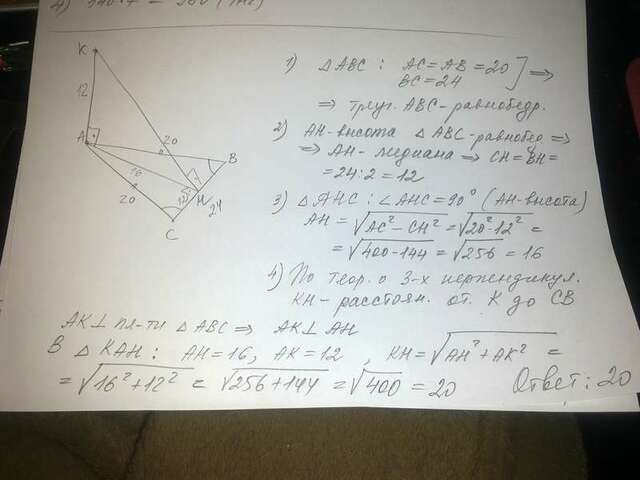 K
12
A
20
16
20
B
H
12
24
C
1) △ABC : AC = AB = 20 ] ⟹
BC = 24
⟹ треуг. ABC - равнобедр.
2) AH - высота △ABC - равнобед ⟹
⟹ AH - медиана ⟹ CH = BH =
= 24 : 2 = 12
3) △AHC : ∠AHC = 90° (AH - высота)
AH = √AC² - CH² = √20² - 12² =
= √400 - 144 = √256 = 16
4) По теор. о 3-х перпендикул.
KH - расстоян. от. K до CB
AK ⊥ пл-ти △ABC ⟹ AK ⊥ AH
В △KAH : AH = 16, AK = 12 , KH = √AH² + AK² =
= √16² + 12² = √256 + 144 = √400 = 20 Ответ : 20